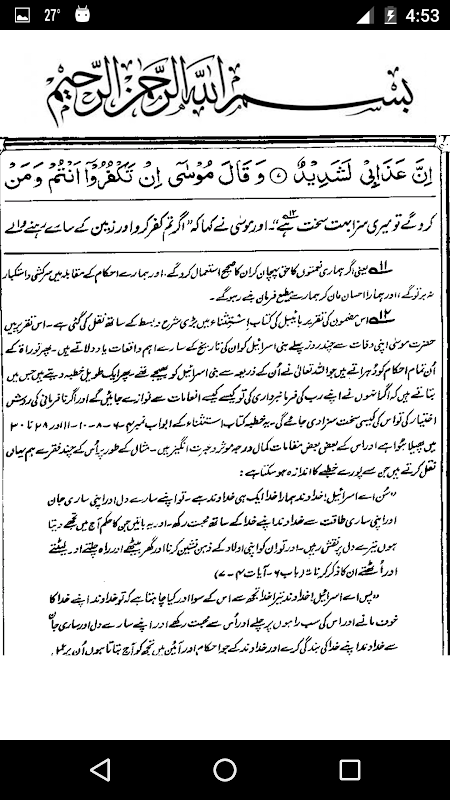 27° 4:53
بسم الله الرحمن الرحيم
اِنَّ عَذَابِیْ لَشَدِیْدٌ ﴿۷﴾ وَ قَالَ مُوْسٰۤی اِنْ تَكْفُرُوْۤا اَنْتُمْ وَ مَنْ
کرو گے تو میری سزا بہت سخت ہے ۱۲"۔ اور موسیٰ نے کہا کہ "اگر تم کفر کرو اور زمین کے سارے رہنے والے
۱۱ یعنی اگر ہماری نعمتوں کا حق پہچان کر ان کا صحیح استعمال کرو گے، اور ہمارے احکام کے مقابلہ میں سرکشی و استکبار
نہ برتو گے، اور ہمارا احسان مان کر ہمارے مطیع فرمان بنے رہو گے۔
۱۲ اس مضمون کی تقریر بائیبل کی کتاب استثناء میں بڑی شرح و بسط کے ساتھ نقل کی گئی ہے۔ اس تقریر میں
حضرت موسیٰ اپنی وفات سے چند روز پہلے بنی اسرائیل کو ان کی تاریخ کے سارے اہم واقعات یاد دلاتے ہیں۔ پھر توراۃ کے
اُن تمام احکام کو دُہراتے ہیں جو اللہ تعالیٰ نے اُن کے ذریعہ سے بنی اسرائیل کو بھیجے تھے۔ پھر ایک طویل خطبہ دیتے ہیں جس میں
بتاتے ہیں کہ اگر انہوں نے اپنے رب کی فرمانبرداری کی تو کیسے کیسے انعامات سے نوازے جائیں گے اور اگر نافرمانی کی روش
اختیار کی تو اس کی کیسی سخت سزا دی جائے گی۔ یہ خطبہ کتاب استثناء کے ابواب نمبر ۴-۶-۸-۱۰-۱۱ اور ۲۸ تا ۳۰
میں پھیلا ہوا ہے اور اس کے بعض بعض مقامات کمال درجہ مؤثر و عبرت انگیز ہیں۔ مثال کے طور پر اُس کے چند فقرے ہم یہاں
نقل کرتے ہیں جن سے پورے خطبے کا اندازہ ہو سکتا ہے:
"سُن اے اسرائیل! خداوند ہمارا خدا ایک ہی خداوند ہے۔ تو اپنے سارے دل اور اپنی ساری جان
اور اپنی ساری طاقت سے خداوند اپنے خدا کے ساتھ محبت رکھ۔ اور یہ باتیں جن کا حکم آج میں تجھے دیتا
ہوں تیرے دل پر نقش رہیں۔ اور تو ان کو اپنی اولاد کے ذہن نشین کرنا اور گھر بیٹھے اور راہ چلتے اور لیٹتے
اور اُٹھتے ان کا ذکر کرنا"۔ (باب ۶۔ آیات ۴-۷)
"پس اے اسرائیل! خداوند تیرا خدا تجھ سے اس کے سوا اور کیا چاہتا ہے کہ تو خداوند اپنے خدا کا
خوف مانے اور اس کی سب راہوں پر چلے اور اُس سے محبت رکھے اور اپنے سارے دل اور ساری جان
سے خداوند اپنے خدا کی بندگی کرے اور خداوند کے جو احکام اور آئین میں تجھ کو آج بتاتا ہوں اُن پر عمل